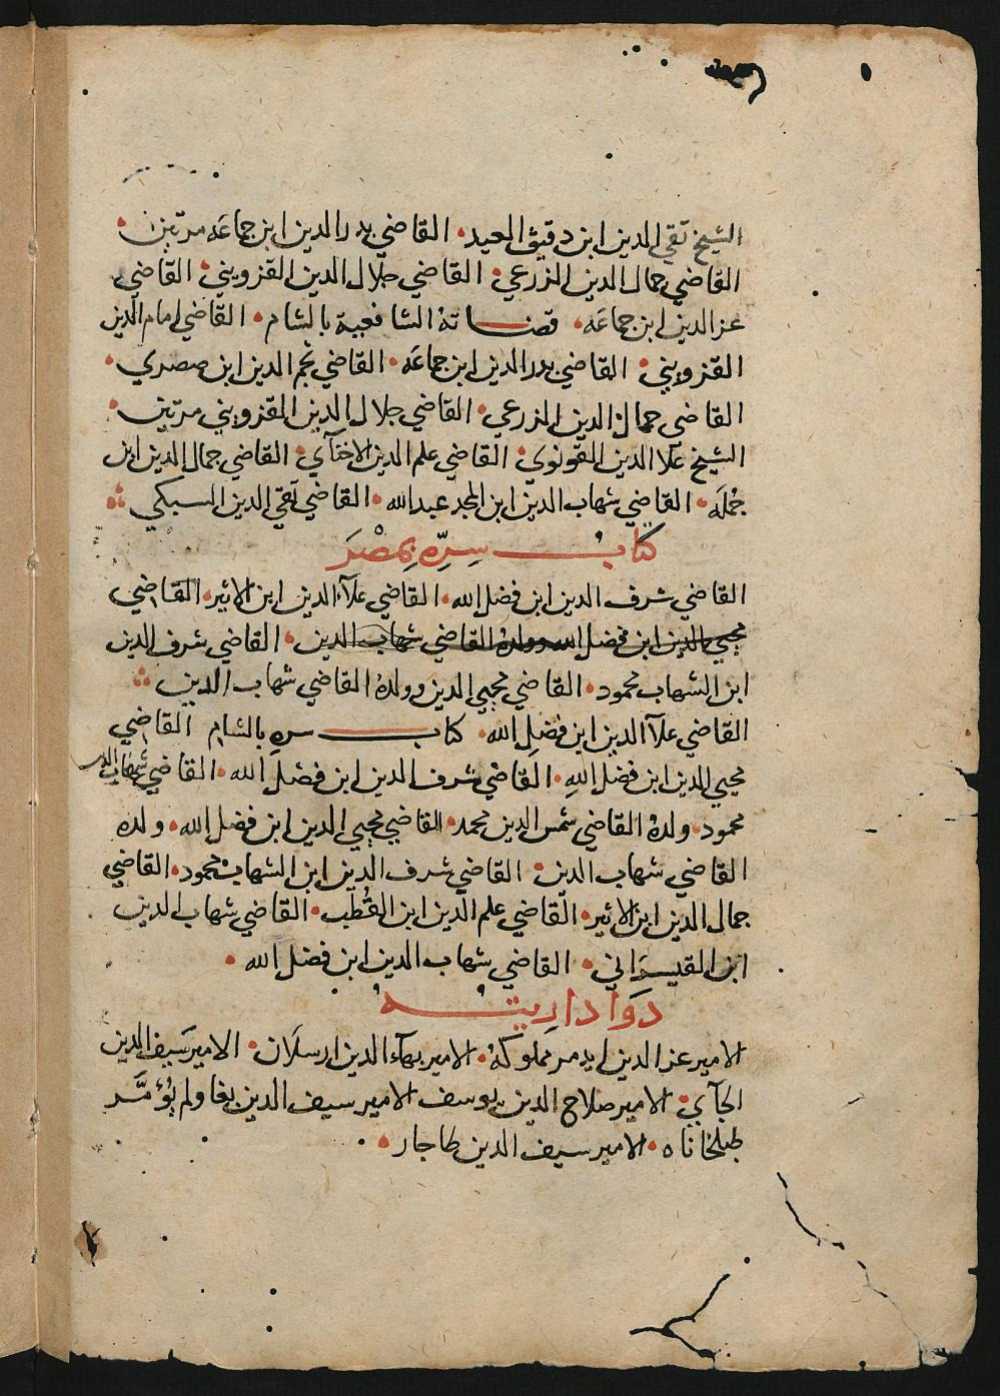 الشيخ تقي الدين ابن دقيق العيد • القاضي بدر الدين ابن جماعه مرتين •
القاضي جمال الدين الزرعي • القاضي جلال الدين القزويني • القاضي
عز الدين ابن جماعه • قضاته الشافعية بالشام • القاضي امام الدين
القزويني • القاضي بدر الدين ابن جماعه • القاضي نجم الدين ابن صصري •
القاضي جمال الدين الزرعي • القاضي جلال الدين القزويني مرتين •
الشيخ علا الدين القونوي • القاضي علم الدين الاخنآي • القاضي جمال الدين ابن
جمله • القاضي شهاب الدين ابن المجد عبد الله • القاضي تقي الدين السبكي
كتاب سره بمصر
القاضي شرف الدين ابن فضل الله • القاضي علآء الدين ابن الاثير • القاضي
محيي الدين ابن فضل الله وولده القاضي شهاب الدين • القاضي شرف الدين
ابن الشهاب محمود • القاضي محيي الدين وولده القاضي شهاب الدين
القاضي علآ الدين ابن فضل الله • كتاب سره بالشام القاضي
محيي الدين ابن فضل الله • القاضي شرف الدين ابن فضل الله • القاضي شهاب الدين
محمود • ولده القاضي شمس الدين محمد • القاضي محيي الدين ابن فضل الله • ولده
القاضي شهاب الدين • القاضي شرف الدين ابن الشهاب محمود • القاضي
جمال الدين ابن الاثير • القاضي علم الدين ابن القطب • القاضي شهاب الدين
ابن القيسراني • القاضي شهاب الدين ابن فضل الله •
دواداريته
الامير عز الدين ايدمر مملوكه • الامير بهآء الدين ارسلان • الامير سيف الدين
الجآي • الامير صلاح الدين يوسف الامير سيف الدين بغا ولم يؤمر
طبلخاناه • الامير سيف الدين طاجار •